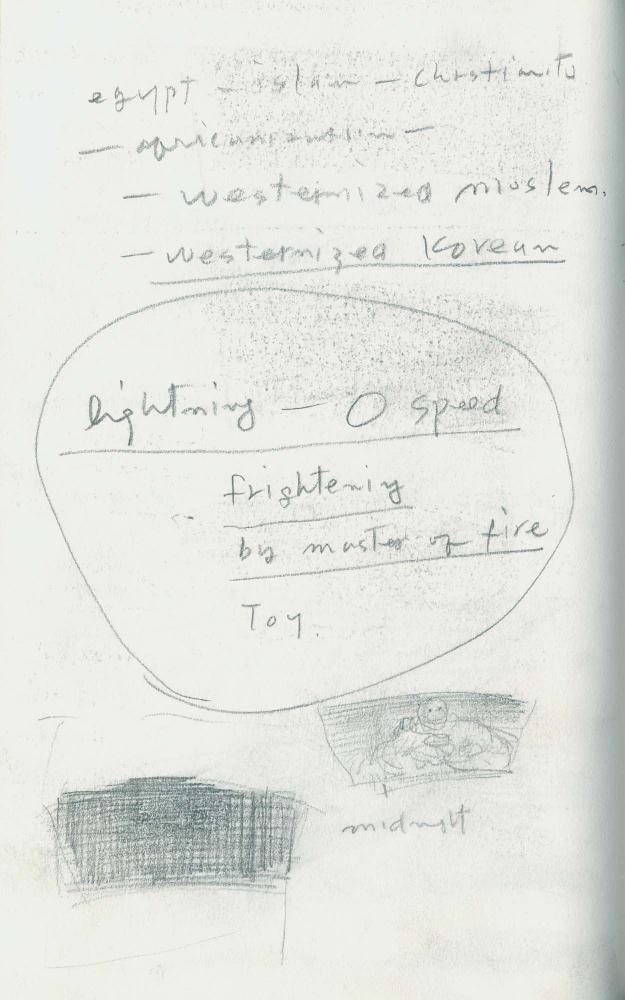 egypt – islam – christimity
– africanization –
– westernized moslem.
– westernized Korean
lightning – 0 speed
frightening
by master of fire
Toy.
midnight